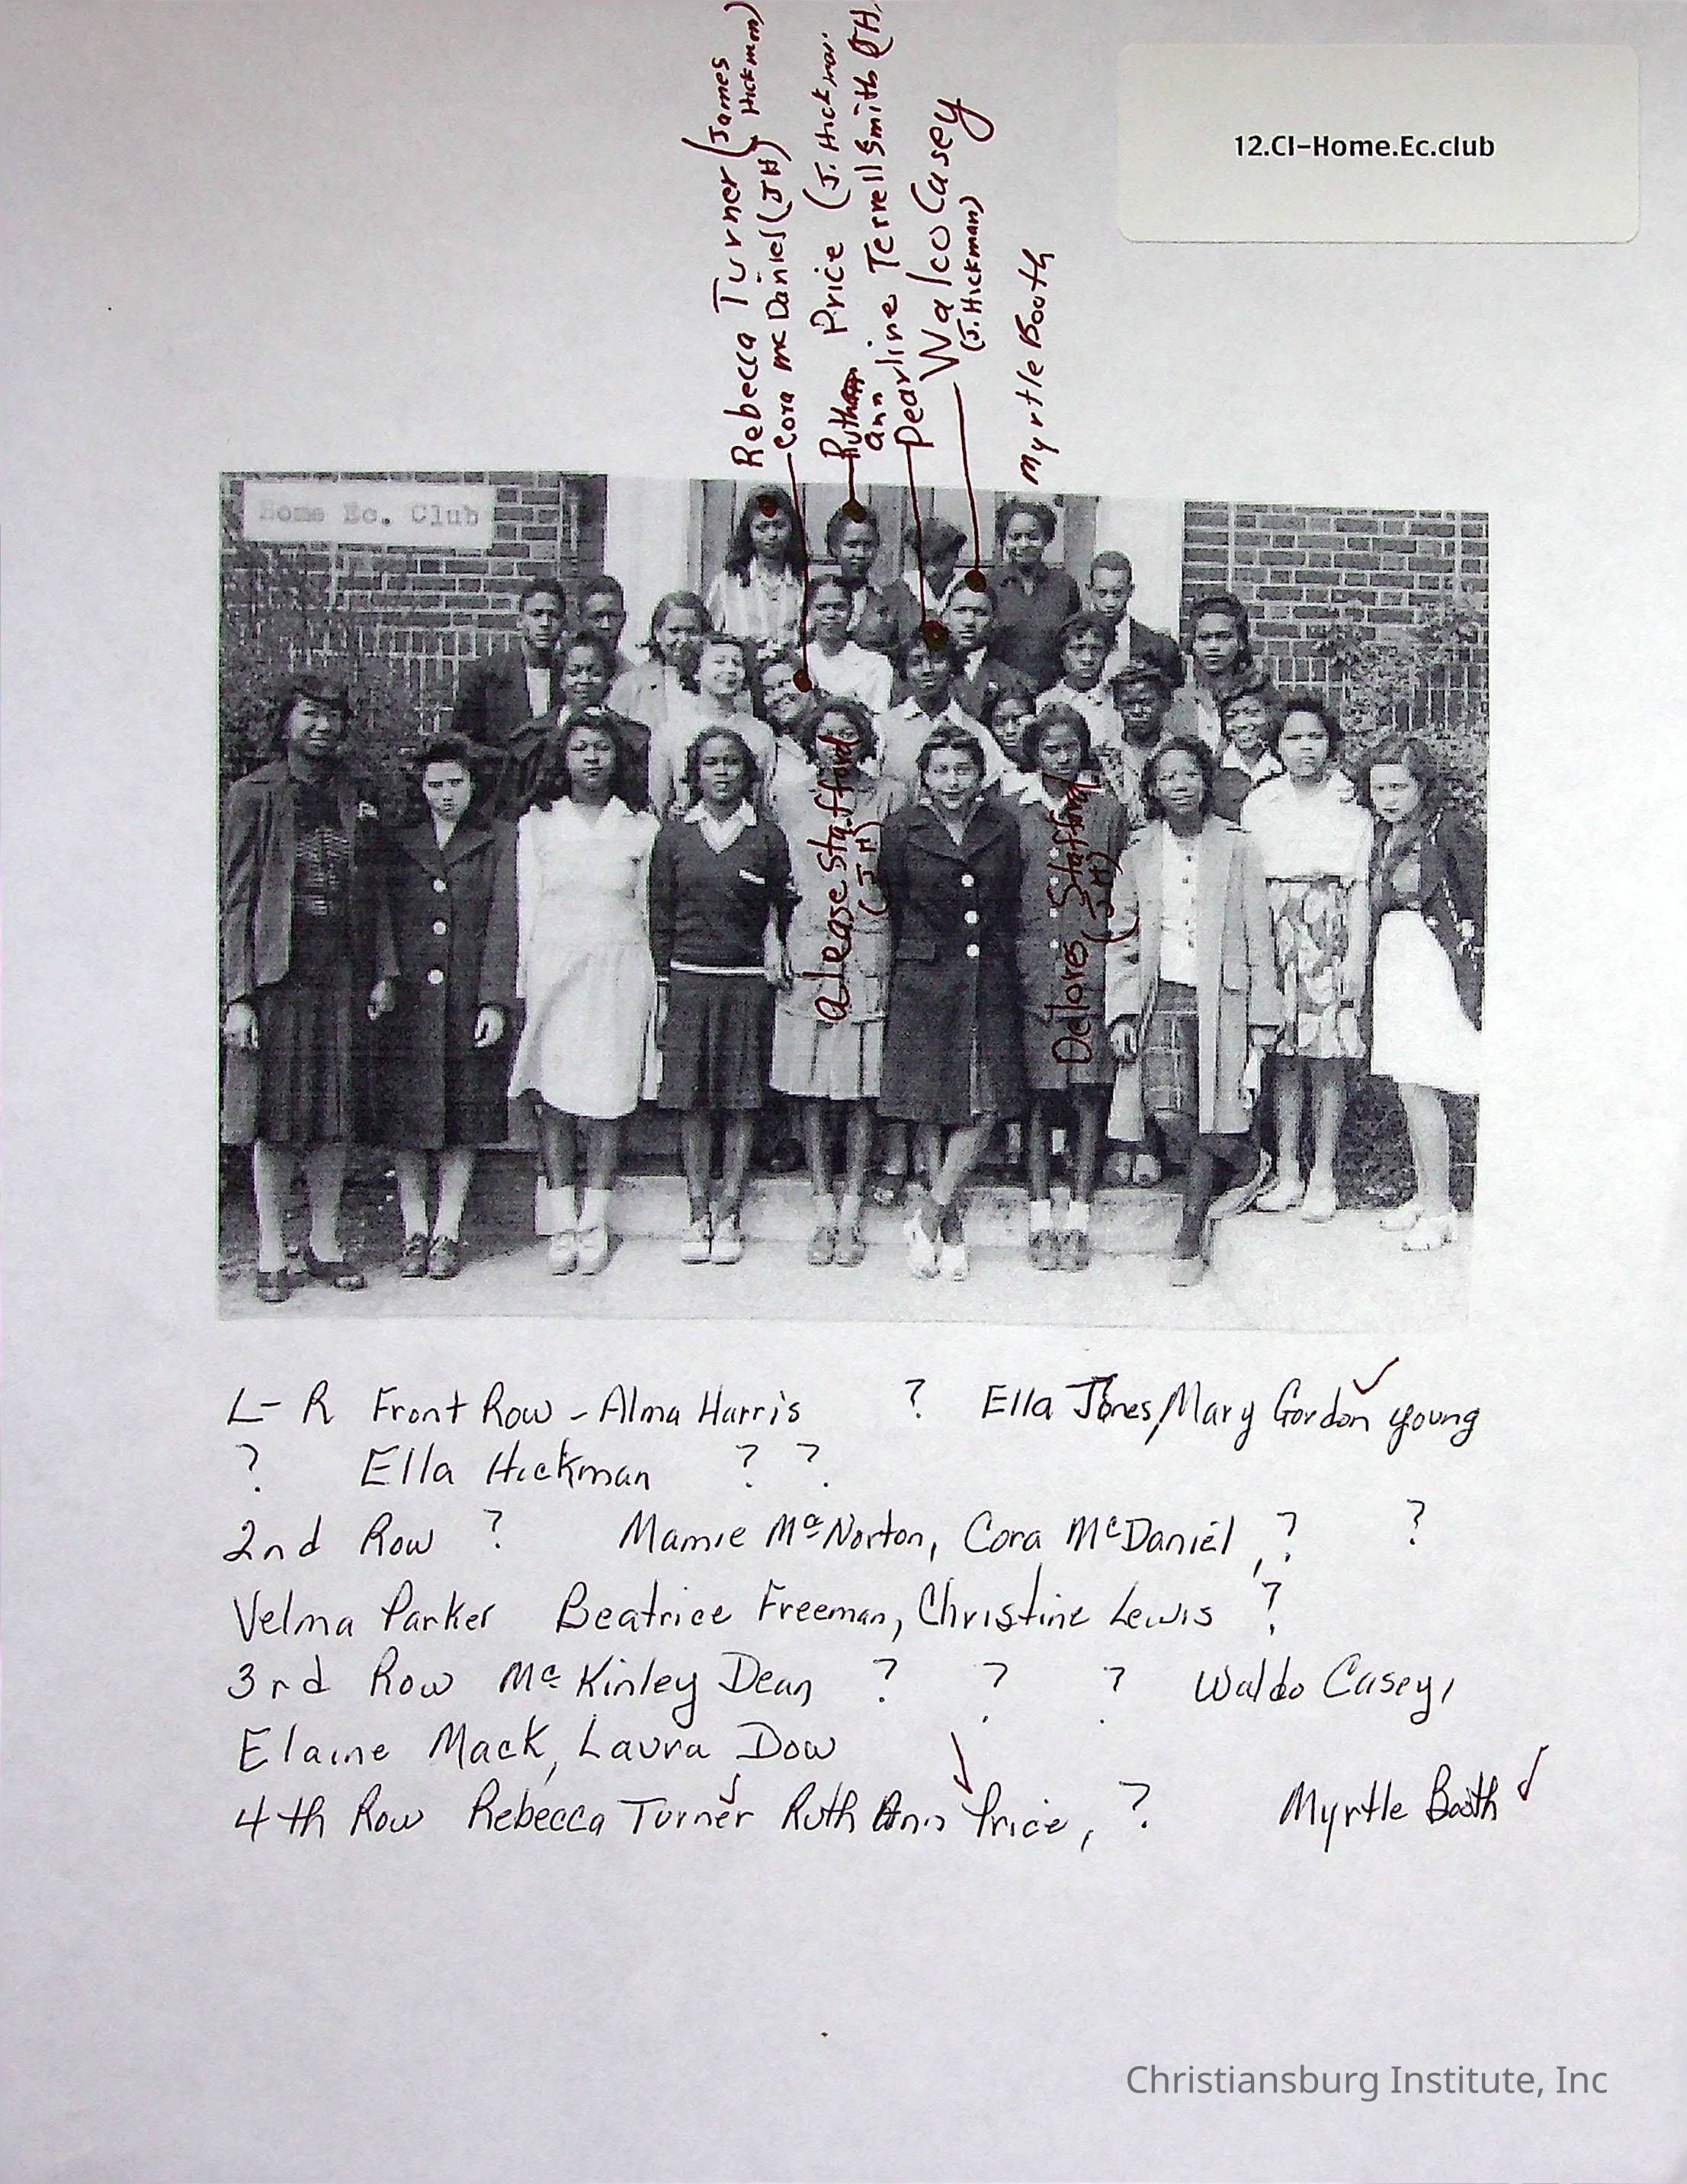 12.CI-Home.Ec.club
Rebecca Turner (James Hickman)
Cora McDaniel (JH)
Ruth Price (J. Hickman
ann Terrell Smith (JH,
Pearline
Walco Casey
(J. Hickman)
Myrtle Booth
Home Ec. Club
alease Stafford
(JH)
Delores Stafford
(JH)
L- R Front Row - Alma Harris ? Ella Jones, Mary Gordon Young
? Ella Hickman ? ?
2nd Row ? Mamie McNorton, Cora McDaniel, ? ?
Velma Parker Beatrice Freeman, Christine Lewis ?
3rd Row McKinley Dean ? ? ? Waldo Casey,
Elaine Mack, Laura Dow
4th Row Rebecca Turner Ruth Ann Price, ? Myrtle Booth
Christiansburg Institute, Inc